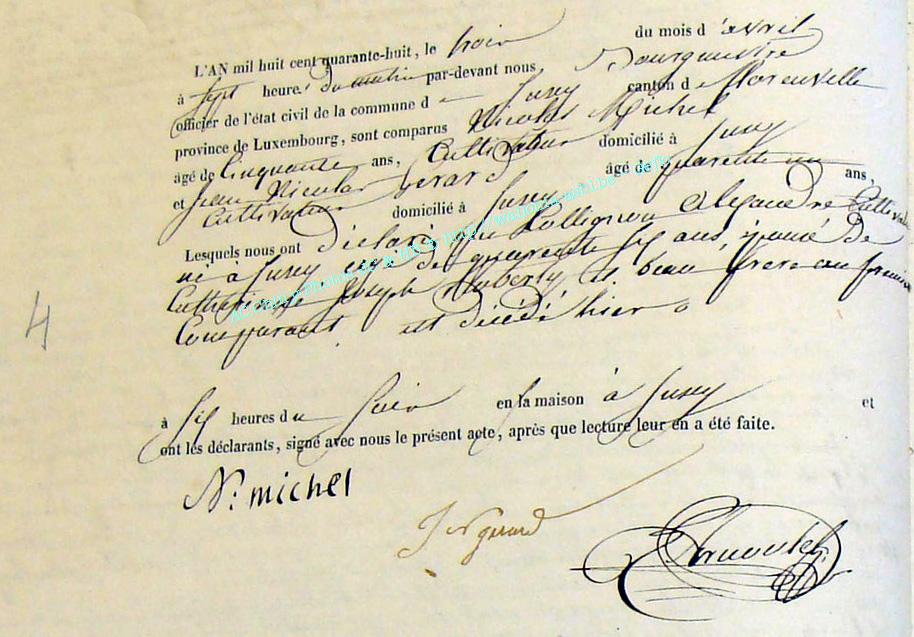 L'AN mil huit cent quarante-huit, le trois du mois d'avril
à sept heures du matin par-devant nous, Bourguemestre
officier de l'état civil de la commune de Suxy canton de florenville
province de Luxembourg, sont comparus Nicolas Michel
âgé de Cinquante ans, Cultivateur domicilié à Suxy
et Jean Nicolas Gerard âgé de quarante un ans,
Cultivateur domicilié à Suxy
Lesquels nous ont déclaré que Collignon Alexandre Cultivateur
né à Suxy agé de quarente six ans, époux de
Catherine Joseph Huberty et beau frere au premier
Comparant est décédé hier
à six heures du Soir en la maison à Suxy et
ont les déclarants, signé avec nous le présent acte, après que lecture leur en a été faite.
N. michel
J N gerard
4